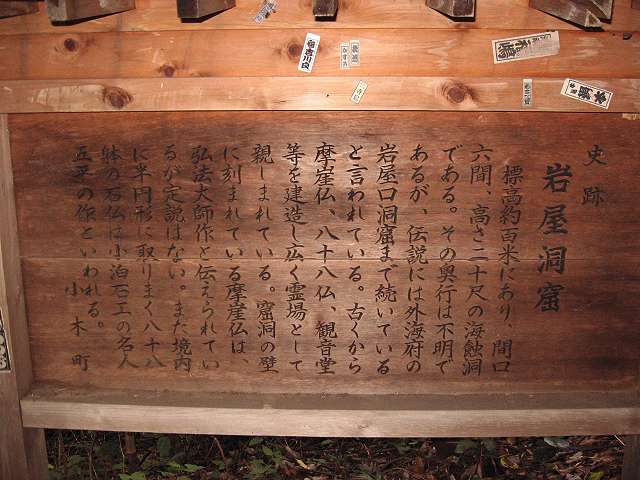 史跡
岩屋洞窟
標高約百米にあり、間口
六間、高さ二十尺の海蝕洞
である。その奥行は不明で
あるが、伝説には外海府の
岩屋口洞窟まで続いている
と言われている。古くから
摩崖仏、八十八仏、観音堂
等を建造し広く霊場として
親しまれている。窟洞の壁
に刻まれている摩崖仏は、
弘法大師作と伝えられてい
るが定説はない。また境内
に半円形に取りまく八十八
体の石仏は小泊石工の名人
五平の作といわれる。
小木町